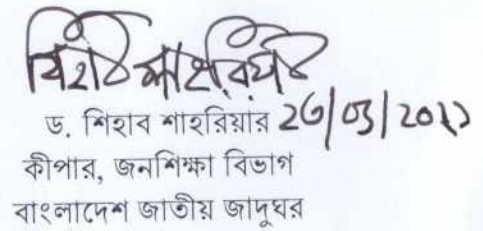 শিহাব শাহরিয়ার
ড. শিহাব শাহরিয়ার ২৩/০৩/২০২১
কীপার, জনশিক্ষা বিভাগ
বাংলাদেশ জাতীয় জাদুঘর